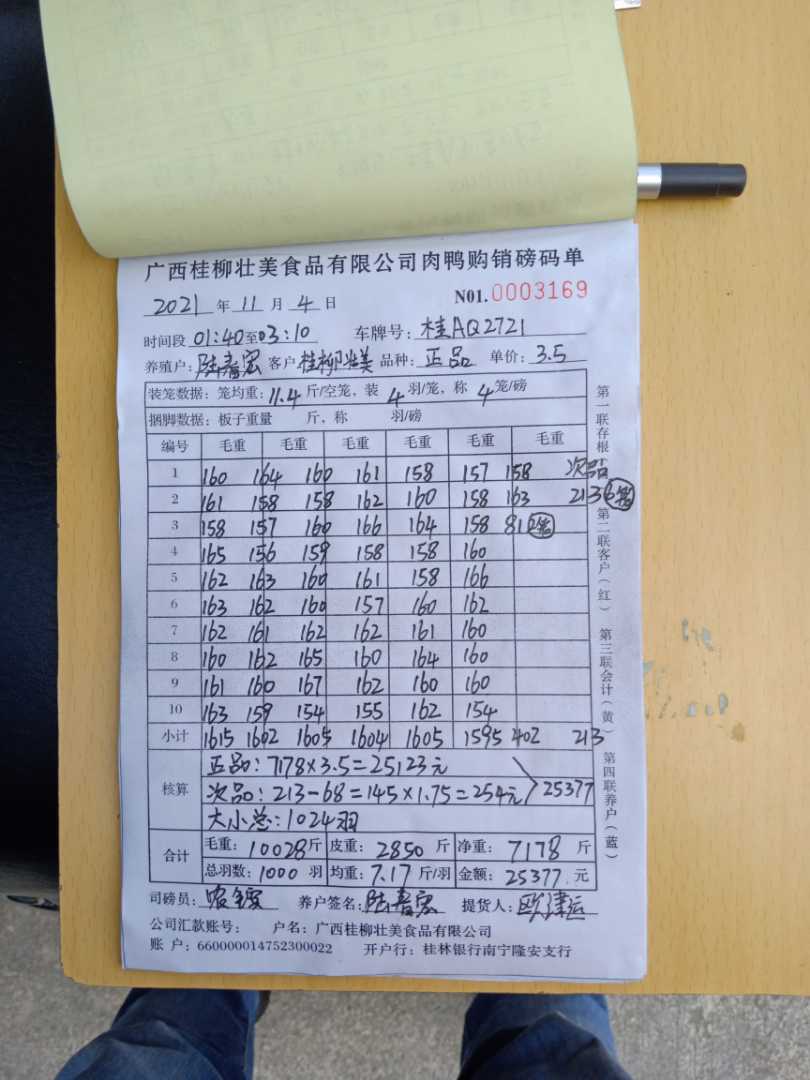 广西桂柳壮美食品有限公司肉鸭购销磅码单
2021 年 11 月 4 日 N01.0003169
时间段 01:40至03:10 车牌号：桂AQ2721
养殖户：陆春宏 客户 桂柳壮美 品种：正品 单价：3.5
装笼数据：笼均重：11.4 斤/空笼，装 4 羽/笼，称 4 笼/磅
捆脚数据：板子重量 斤，称 羽/磅
编号 毛重 毛重 毛重 毛重 毛重 毛重
1 160 164 160 161 158 157 158 次品
2 161 158 158 162 160 158 163 213 6笼
3 158 157 160 166 164 158 81 2笼
4 165 156 159 158 158 160
5 162 163 160 161 158 166
6 163 162 160 157 160 162
7 162 161 162 162 161 160
8 160 162 165 160 164 160
9 161 160 167 162 160 160
10 163 159 154 155 162 154
小计 1615 1602 1605 1604 1605 1595 402 213
核算
正品：7178×3.5=25123元
次品：213-68=145×1.75=254元 25377
大小总：1024羽
合计
毛重：10028斤 皮重：2850 斤 净重：7178 斤
总羽数：1000 羽 均重：7.17 斤/羽 金额：25377 元
司磅员： 养户签名：陆春宏 提货人：
公司汇款账号： 户名：广西桂柳壮美食品有限公司
账 户：660000014752300022 开户行：桂林银行南宁隆安支行
第一联存根 第二联客户（红） 第三联会计（黄） 第四联养户（蓝）